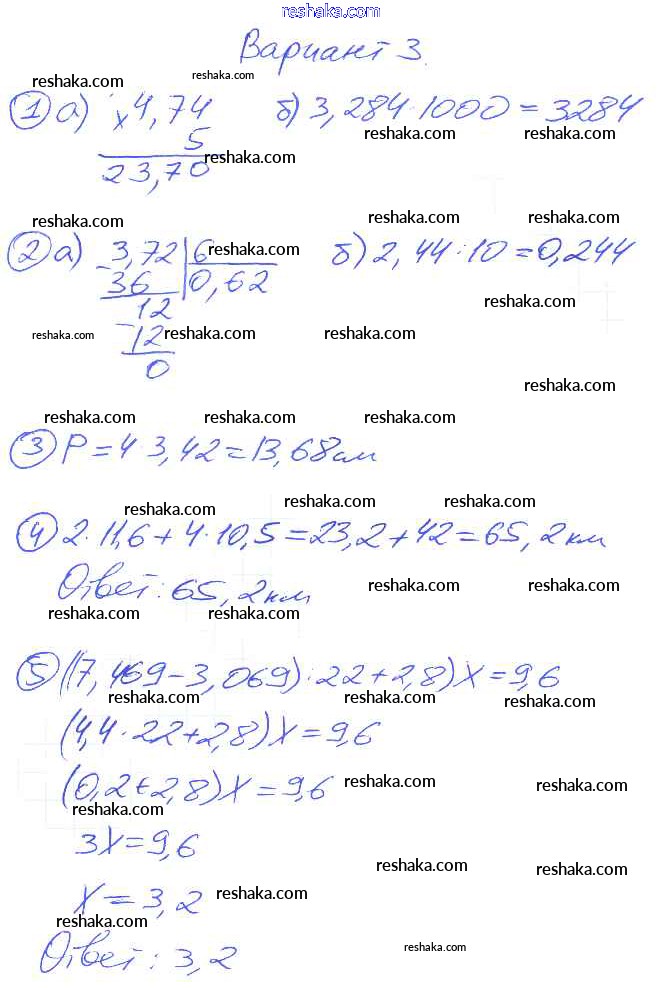 reshaka.com
Вариант 3.
reshaka.com reshaka.com
① а) × 4,74 б) 3,284·1000=3284
5 reshaka.com reshaka.com
reshaka.com
23,70
reshaka.com reshaka.com reshaka.com
② а) 3,72 | 6 reshaka.com б) 2,44:10=0,244
- 36 | 0,62
12 reshaka.com
- 12
reshaka.com reshaka.com reshaka.com
0
reshaka.com
reshaka.com reshaka.com reshaka.com
③ P=4 3,42=13,68см
reshaka.com reshaka.com reshaka.com
④ 2·11,6+4·10,5=23,2+42=65,2км
Ответ: 65,2км reshaka.com reshaka.com
reshaka.com reshaka.com
⑤ ((7,469-3,069):22+2,8)X=9,6
reshaka.com reshaka.com reshaka.com
(4,4:22+2,8)X=9,6
(0,2+2,8)X=9,6 reshaka.com reshaka.com
reshaka.com
3X=9,6
reshaka.com reshaka.com
X=3,2 reshaka.com
reshaka.com
Ответ: 3,2 reshaka.com